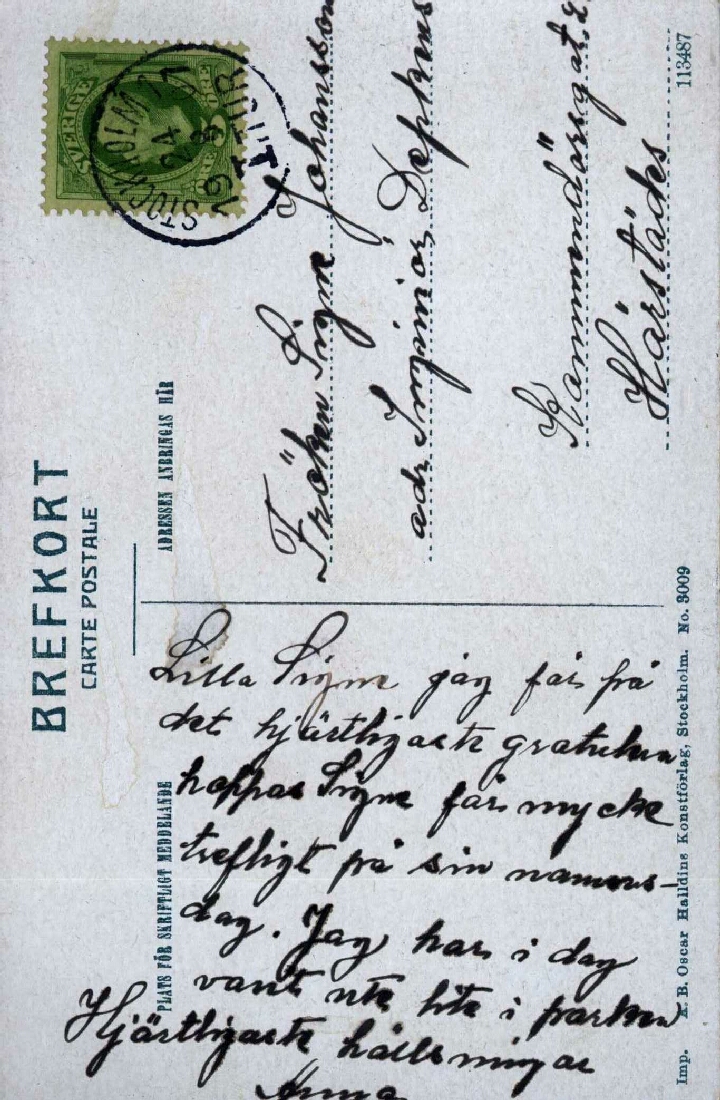 BREFKORT
CARTE POSTALE
ADRESSEN ANBRINGAS HÄR
PLATS FÖR SKRIFTLIGT MEDDELANDE
SVERIGE
STOCKHOLM 1
24 8
19
TUR
Fröken Signe Johansson
adr. Ingeniör Depkens
Kommendörsgat. 2
Härstädes
113487
Lilla Signe jag får på
det hjärtligaste gratulera
hoppas Signe får mycke
trefligt på sin namns-
dag. Jag har i dag
varit ute lite i parken
Hjärtligaste hällsningar
Anna
Imp. A. B. Oscar Halldins Konstförlag, Stockholm. No. 3009